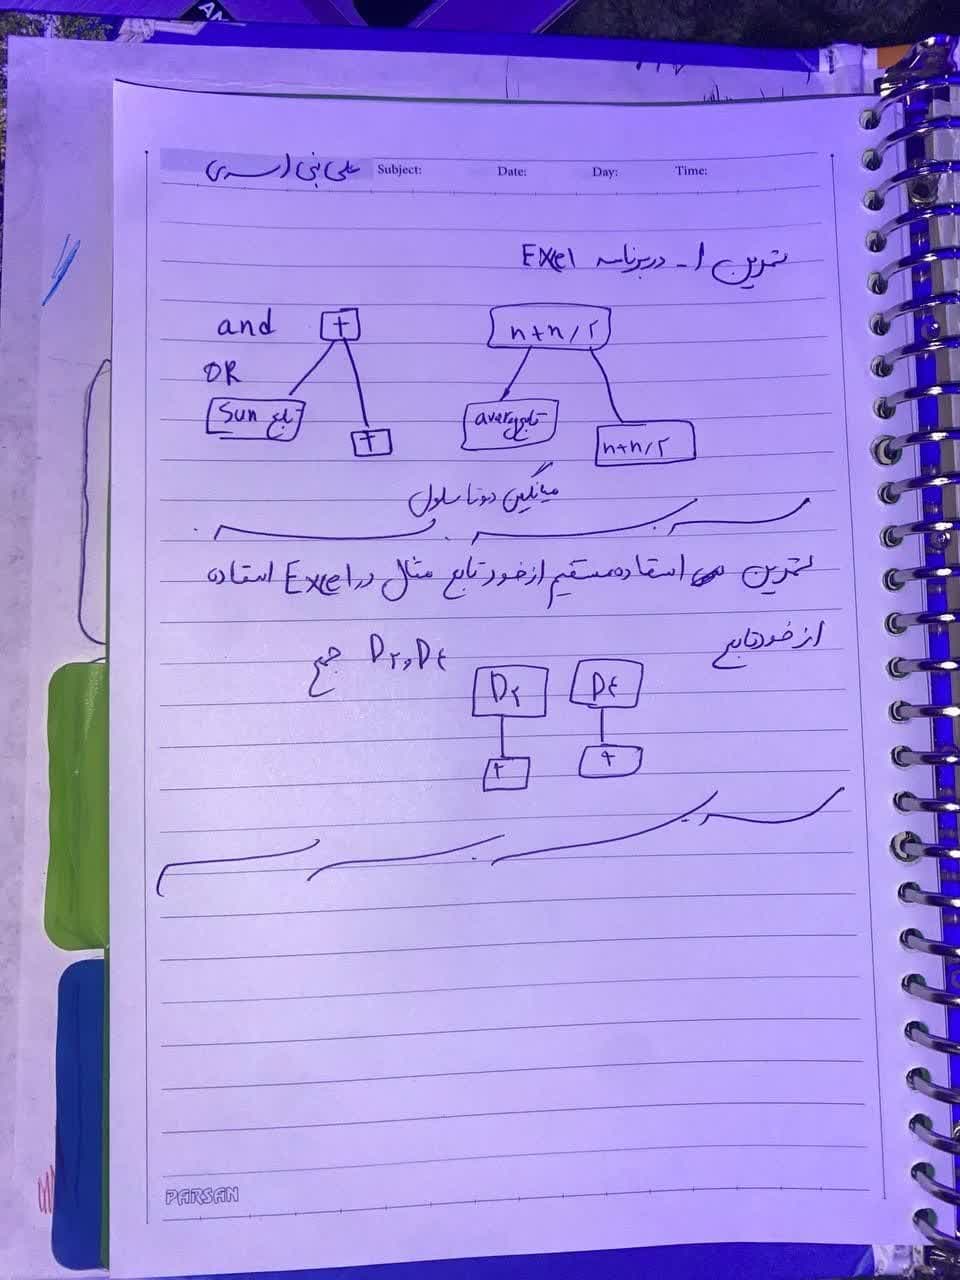 علی بنی اسدی Subject: Date: Day: Time:
تمرین ۱ - در برنامه Exel
and + n+n/۲
OR
تابع Sun + تابع average n+n/۲
میانگین دوتا سلول
تمرین استفاده مستقیم از خود تابع مثال در Excel استفاده
از خود تابع
جمع D۲ و D۴
D۲ D۴
+ +
PARSAN